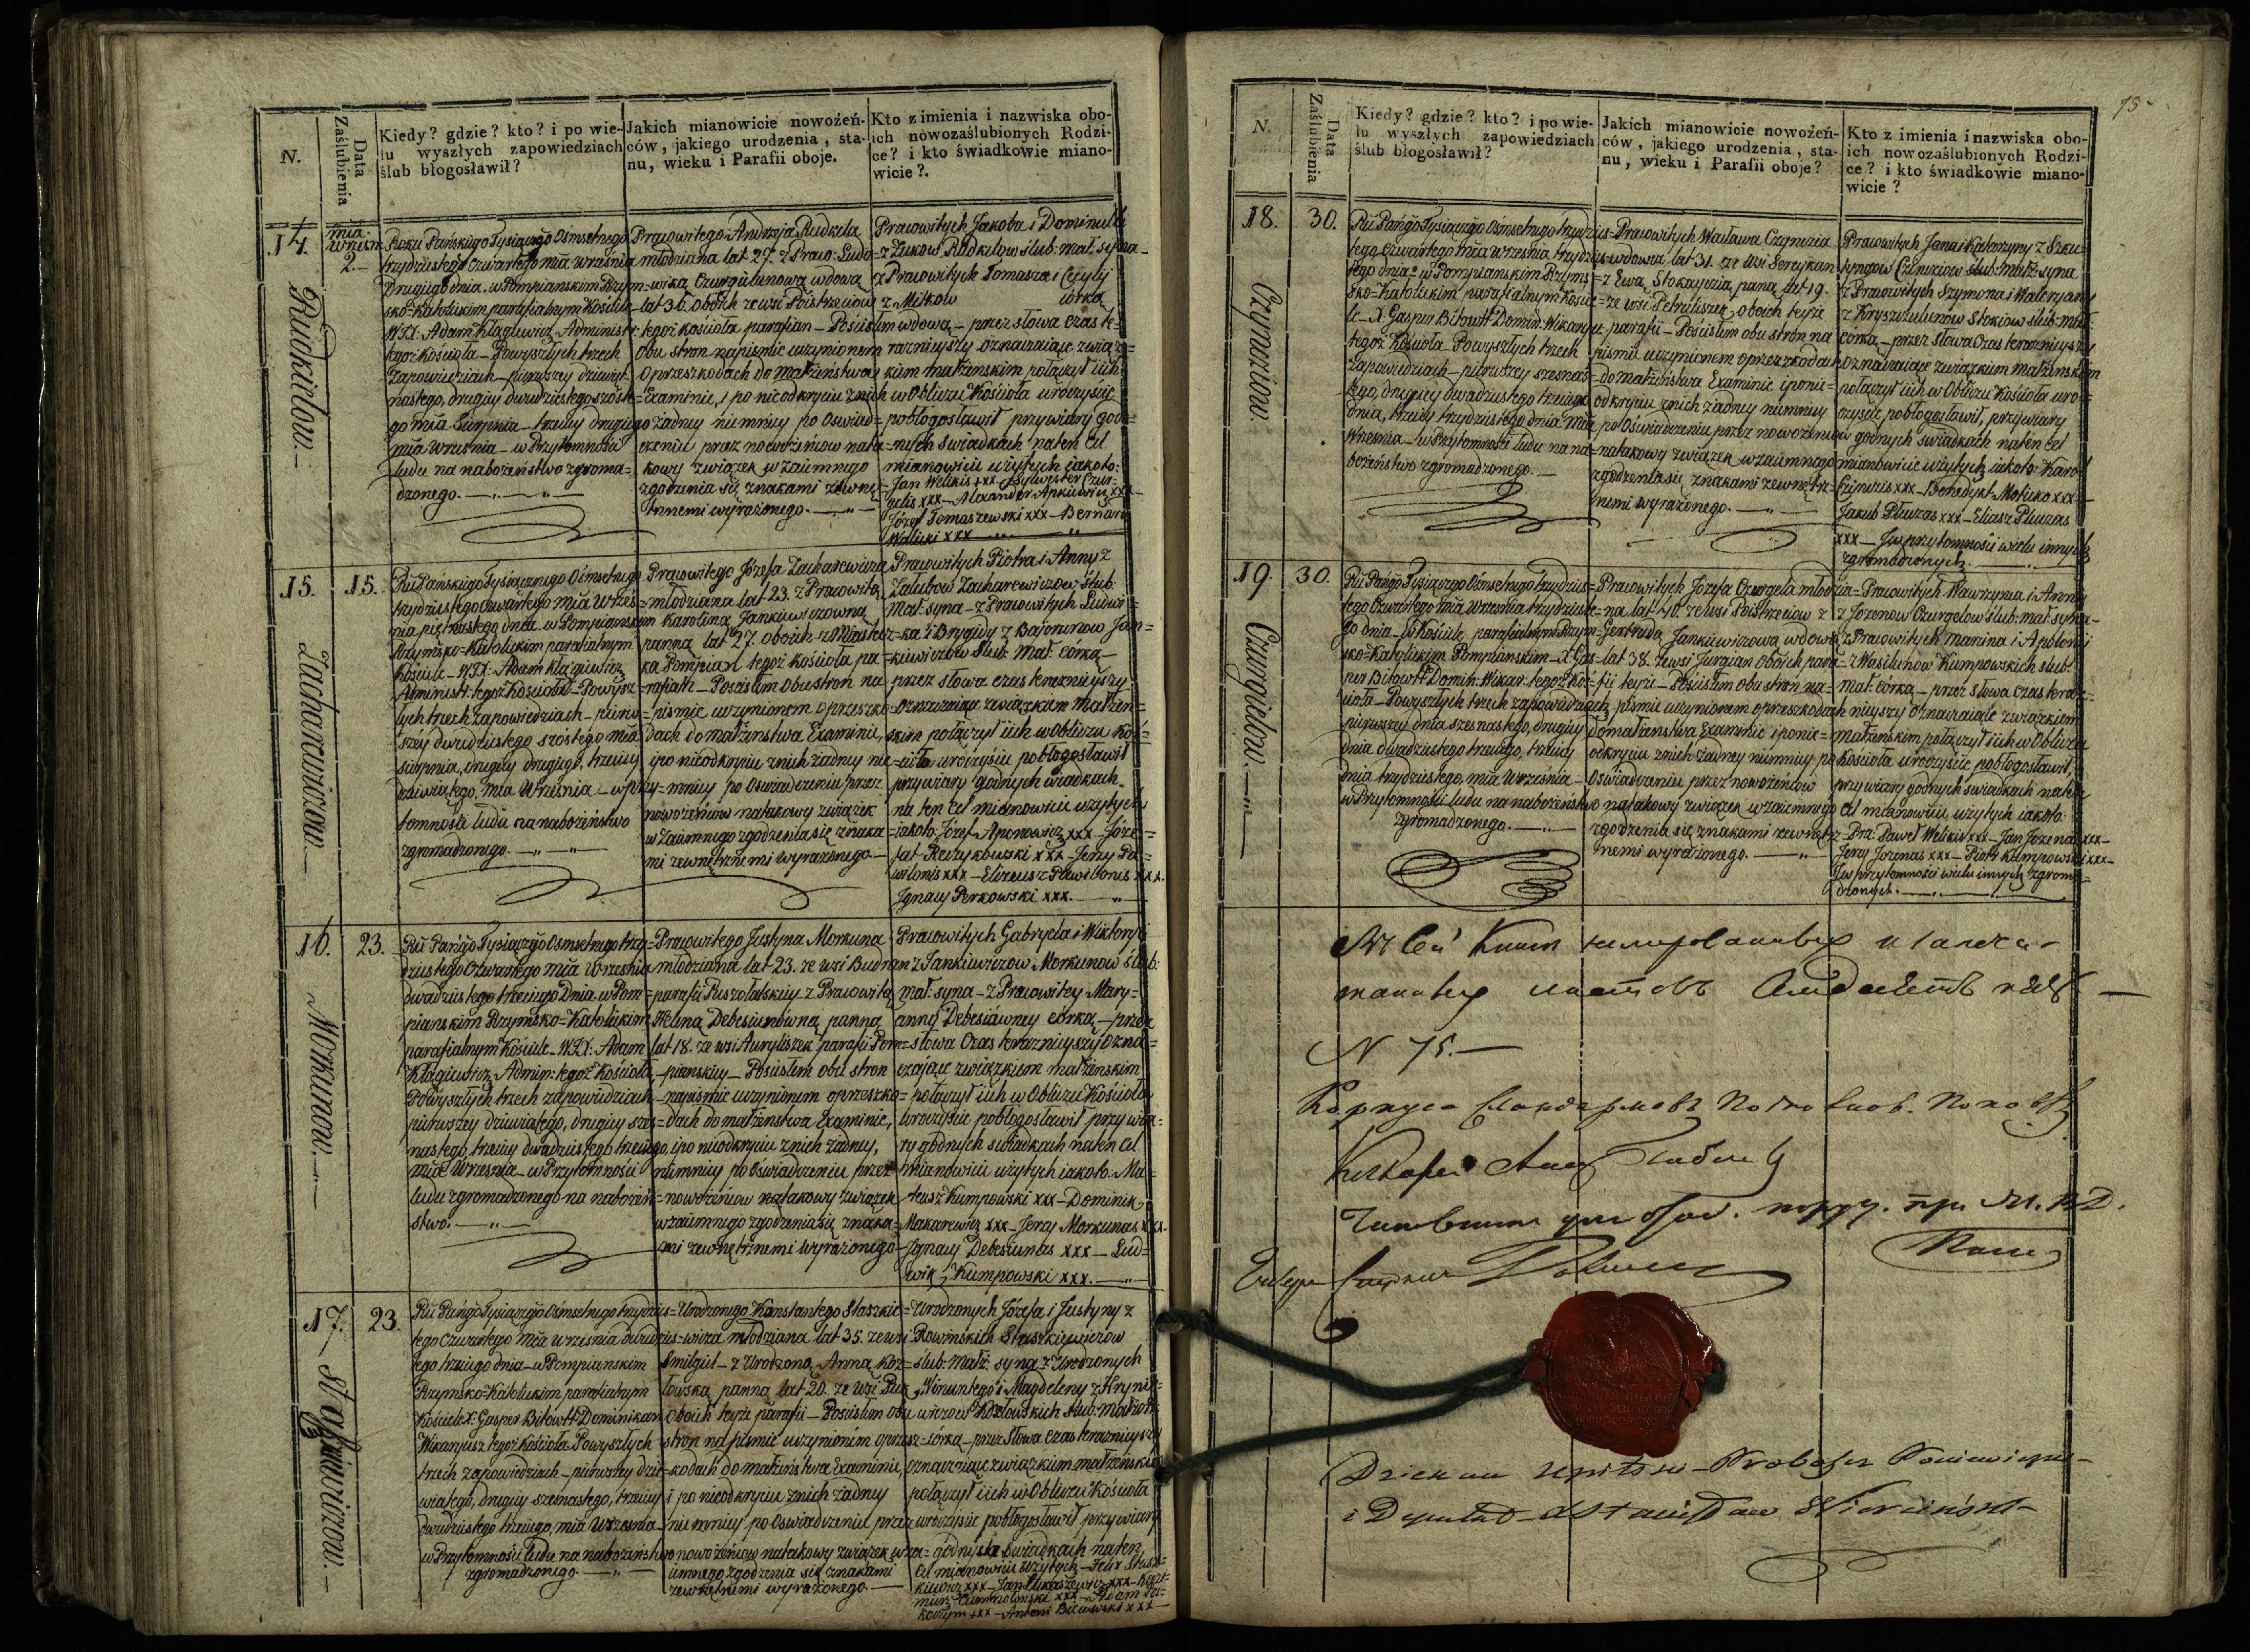 N.
Data
Zaślubienia
Kiedy? gdzie? kto? i po wie-
lu wyszłych zapowiedziach
ślub błogosławił?
Jakich mianowicie nowożeń-
ców, jakiego urodzenia, sta-
nu, wieku i Parafii oboje.
Kto z imienia i nazwiska obo-
ich nowozaślubionych Rodzi-
ce? i kto świadkowie miano-
wicie?.
14.
Rudkilow.
2.
Roku Pańskiego Tysiącznego Ośmsetnego
trzydziestego czwartego mca września
Drugiego dnia. w Pompianskim Rzym=
sko-Katolickim parafialnym Kościele
WJX. Adam Kłągiewicz Administr:
tegoż Kościoła – Powyszłych trzech
Zapowiedziach – pierwszey dziewięt=
nastego, drugiey dwudziestego szóste=
go mca Sierpnia – trzeciey drugiego
mca Września – w Przytomności
ludu na nabożeństwo zgroma=
dzonego.
Pracowitego Andrzeja Rudkela
młodziana lat 27. z Praco: Ludo=
wiką Czurgielunową wdową
lat 30. oboich ze wsi Poistrzeciow
tegoż kościoła parafian – Pościsłem
obu stron na piśmie uczynionem
o przeszkodach do małżeństwa
Examinie, i po nieodkryciu z nich
żadney niemniey po Oświad=
czeniu przez nowożeńcow na ta=
kowy związek wzaiemnego
zgodzenia się znakami zewnę=
trznemi wyrażonego.
Pracowitych Jakoba i Dominulli
z Zukow Rudkilow ślub: mał: syna –
z Pracowitych Tomasza i Cecylij
z Milkow córką
wdową – przez słowa czas te=
raznieyszy oznaczaiące związ=
kiem małżenskim połączył iich
w Obliczu Kościoła uroczyście
pobłogosławił przy wiary god=
nych świadkach na ten cel
mianowicie użytych iakoto:
Jan Welikis xxx – Sylwester Czur=
gelis xxx – Alexander Ankiewicz xxx
Józef Tomaszewski xxx – Bernard
Walicki xxx
15.
Zacharewiczow.
15.
Rŭ Pańskiego Tysiącznego Ośmsetnego
trzydziestego czwartego mca Wrześ=
nia piętnastego dnia. w Pompianskim
Rzymsko-Katolickim parafialnym
Kościele – WJX. Adam Kłągiewicz
Administr: tegoż Kościoła – Powysz=
łych trzech zapowiedziach – pierw=
széy dwudziestego szóstego mca
sierpnia, drugiey drugiego, trzeciey
dziewiątego, mca Września – w przy=
tomności ludu na nabożeństwo
zgromadzonego.
Pracowitego Józefa Zacharewicza
młodziana lat 23. z Pracowitą
Karoliną Jankiewiczowną
panną lat 27. oboich z Miastecz=
ka Pompian tegoż kościoła pa=
rafian – Pościsłem obu stron na
piśmie uczynionem o przeszko=
dach do małżeństwa Examinie,
i po nieodkryciu z nich żadney nie=
mniey po Oświadczeniu przez
nowożeńców na takowy związek
wzaiemnego zgodzenia się znaka=
mi zewnętrznemi wyrażonego.
Pracowitych Piotra i Anny z
Zalubow Zacharewiczow ślub:
mał: syna – z Pracowitych Ludwi=
ka i Brygidy z Bajorunow Jan=
kiewiczow ślub. mał. córką –
przez słowa czas teraznieyszy
oznaczaiące związkiem Małżen=
skim połączył iich w obliczu Ko=
ścioła uroczyście pobłogosławił
przy wiary godnych świadkach
na ten cel mianowicie użytych
iakoto: Józef Aponowicz xxx – Józe=
fat Reczykowski xxx – Jerzy Pa=
wilonis xxx – Elizeusz Pawilonis xxx.
Ignacy Perkowski xxx.
16.
Morkunow.
23.
Rŭ Pańg̃o Tysiączg̃o Ośmsetnego trzy=
dziestego czwartego mca Września
dwadziestego trzeciego Dnia. w Pom=
pianskim Rzymsko=Katolickim
parafialnym Kościele – WJX: Adam
Kłągiewicz Admin: tegoż Kościoła,
Powyszłych trzech zapowiedziach
pierwszey dziewiątego, drugiey szes=
nastego, trzeciey dwadziestego trzeciego,
mca Września – w Przytomności
ludu zgromadzonego na nabożeń=
stwo.
Pracowitego Justyna Morkuna
młodziana lat 23. ze wsi Budran
parafii Puszołatskiey z Pracowitą
Heleną Debesiunówną panną
lat 18. ze wsi Auryliszek parafii Pom=
pianskiey – Pościsłem obu stron
na piśmie uczynionem o przeszko=
dach do małżeństwa Examinie,
i po nieodkryciu z nich żadney,
niemniey po Oświadczeniu przez
nowożeńców na takowy związek
wzaiemnego zgodzenia się znaka=
mi zewnętrznemi wyrażonego
Pracowitych Gabryela i Wiktoryi
z Jankiewiczow Morkunow ślub:
mał: syna – z Pracowitey Mary=
anny Debesiawney córką – przez
słowa Czas teraznieyszy Ozna=
czające związkiem małżenskim
połączył iich w Obliczu Kościoła
uroczyście pobłogosławił przy wia=
ry godnych świadkach na ten cel
mianowicie użytych iakoto: Ma=
teusz Kumpowski xxx – Dominik
Makarewicz xxx – Jerzy Morkunas xxx.
Ignacy Debesiunas xxx – Lud=
wik Kumpowski xxx.
17.
Staszkiewiczow.
23.
Rŭ Pańg̃o Tysiączg̃o Ośmsetnego trzydzies=
tego czwartego mca września dwudzies=
tego trzeciego dnia – w Pompianskim
Rzymsko=Katolickim parafialnym
Kościele X: Gasper Bitowtt Dominikan
Wikaryusz tegoż Kościoła Powyszłych
trzech zapowiedziach – pierwszey dzie=
wiatego, drugiey szesnastego, trzeciey
dwudziestego trzeciego, mca Września –
w Przytomności ludu na nabożeństwo
zgromadzonego.
Urodzonego Konstantego Staszkie=
wicza młodziana lat 35. ze wsi
Smilgiel – z Urodzoną Anną Koz=
łowską panną lat 20. ze wsi
Oboich teyże parafii – Pościsłem obu
stron na piśmie uczynionem o przesz=
kodach do małżeństwa Examinie,
i po nieodkryciu z nich żadney
niemniey po Oświadczeniu przez
nowożeńcow na takowy związek wza=
iemnego zgodzenia się znakami
zewnętrznemi wyrażonego.
Urodzonych Józefa i Justyny z
Rowinskich Staszkiewiczow
ślub: Małż: syna z Urodzonych
Winuntego i Magdeleny z Hrynie=
wiczow Kozłowskich ślub: małżon:
córką – przez słowa czas teraznieyszy
oznaczaiące związkiem małżeńskim
połączył iich w Obliczu Kościoła
uroczyście pobłogosławił przy wiary
godnych świadkach na ten
cel mianowicie użytych – Felix Stasz=
kiewicz xxx – Jan Łukaszewicz xxx –
xxx – Adam
xxx – Antoni xxx
75
N.
Data
Zaślubienia
Kiedy? gdzie? kto? i po wie-
lu wyszłych zapowiedziach
ślub błogosławił?
Jakich mianowicie nowożeń-
ców, jakiego urodzenia, sta-
nu, wieku i Parafii oboje?
Kto z imienia i nazwiska obo-
ich nowozaślubionych Rodzi-
ce? i kto świadkowie miano-
wicie?
18.
Czynwziow.
30.
Rŭ Pańg̃o Tysiączg̃o Ośmsetnego trzydzies=
tego czwartego mca Września trzydzies=
tego dnia – w Pompianskim Rzyms=
sko=Katolickim parafialnym Koście=
le – X. Gasper Bitowtt Domin: Wikaryu
tegoż Kościoła – Powyszłych trzech
zapowiedziach – pierwszey szesnas=
tego, drugiey dwadziestego trzeciego
dnia, trzeciey trzydziestego dnia Mca
Września – w Przytomności ludu na na=
bożeństwo zgromadzonego.
Pracowitych Wacława
wdowca lat 31. ze wsi Sereykan
z Ewą Stokayczią panną lat 19.
ze wsi Petruliszek, oboich teyże
parafii – Pościsłem obu stron na
piśmie uczynionem o przeszkodach
do małżeństwa Examinie i ponie=
odkryciu z nich żadney niemniey
po Oświadczeniu przez nowożeńców
na takowy związek wzaiemnego
zgodzenia się znakami zewnętrz=
nemi wyrażonego.
Pracowitych Jana i Katarzyny z Szku=
ślub: małż: syna
z Pracowitych Szymona i Waleryany
z Kryszczelunow Stokiow ślub: mał:
córką – przez słowa Czas teraznieyszy
oznaczaiące związkiem małżenskim
połączył iich w Obliczu Kościoła uro=
czyście pobłogosławił, przy wiary
godnych świadkach na ten cel
mianowicie użytych iakoto: Karol
xxx – Benedykt Matuko xxx –
Jakub Pluszas xxx – Eliasz Pluszas
xxx – w przytomności wielu innych
zgromadzonych.
19.
Czurgielow.
30.
Rŭ Pańg̃o Tysiączg̃o Ośmsetnego trzydzies=
tego Czwartego mca Września trzydzieste=
go dnia – w Kościele parafialnym Rzym=
sko=Katolickim Pompianskim – X. Gas=
per Bitowtt Domin: Wikar: tegoż Koś=
cioła – Powyszłych trzech zapowiedziach,
pierwszey dnia szesnastego, drugiey
dnia dwadziestego trzeciego, trzeciey
dnia trzydziestego, mca Września –
w Przytomności ludu na nabożeństwo
zgromadzonego.
Pracowitych Józefa Czurgela młodzia=
na lat 40. ze wsi Poistrzeciow z
Gertrudą Jankiewiczową wdową
lat 38. ze wsi Jurgian Oboich para=
fii teyże – Pościsłem obu stron na=
piśmie uczynionem o przeszkodach
do małżeństwa Examinie i ponie=
odkryciu z nich żadney niemniey po
Oświadczeniu przez nowożeńców
na takowy związek wzaiemnego
zgodzenia się znakami zewnętrz=
nemi wyrażonego.
Pracowitych Wawrzyna i Anny
z Jozonow Czurgelow ślub: mał: syna –
z Pracowitych Marcina i Apolonij
z Wasilunów Kumpowskich ślub:
mał: córką – przez słowa czas teraz=
nieyszy Oznaczaiące związkiem
małżenskim połączył iich w Obliczu
Kościoła uroczyście pobłogosławił,
przy wiary godnych świadkach na ten
cel mianowicie użytych iakoto:
Pra: Paweł Welikis xxx – Jan Jozenas xxx –
Jerzy Jozenas xxx – Piotr Kumpowski xxx –
w przytomności wielu innych zgroma=
dzonych.
Въ сей Книгѣ нумерованныхъ и
листовъ семдесятъ пять
N 75.
Корпуса Жандармовъ Подполков.
Dziekan Upitski – Proboszcz Poniewiezki –
i Deputat